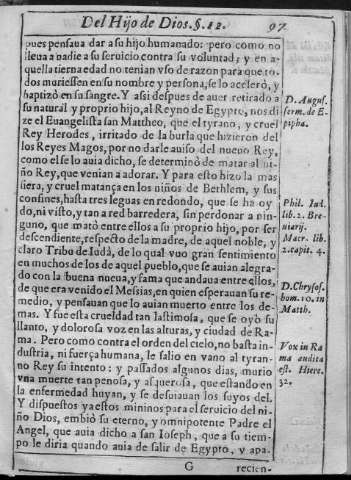 Del Hijo de Dios. §. 12. 97
pues pensaua dar a su hijo humanado: pero como no
lleua a nadie a su seruicio contra su voluntad; y en a-
quella tierna edad no tenian vso de razon para que to-
dos muriessen en su nombre y persona, se lo acelerò, y
baptizò en su sangre. Y assi despues de auer retirado a
su natural y proprio hijo, al Reyno de Egypto, nos di
ze el Euangelista san Mattheo, que el tyrano, y cruel
Rey Herodes, irritado de la burla que hizieron del
los Reyes Magos, por no darle auiso del nueuo Rey,
como el se lo auia dicho, se determinò de matar al ni-
ño Rey, que venian a adorar. Y para esto hizo la mas
fiera, y cruel matança en los niños de Bethlem, y sus
confines, hasta tres leguas en redondo, que se ha oy
do, ni visto, y tan a red barredera, sin perdonar a nin-
guno, que matò entre ellos a su proprio hijo, por ser
descendiente, respecto de la madre, de aquel noble, y
claro Tribu de Iudà, de lo qual vuo gran sentimiento
en muchos de los de aquel pueblo, que se auian alegra-
do con la buena nueua, y fama que andaua entre ellos,
de que era venido el Messias, en quien esperauan su re-
medio, y pensauan que lo auian muerto entre los de-
mas. Y fue esta crueldad tan lastimosa, que se oyò su
llanto, y dolorosa voz en las alturas, y ciudad de Ra-
ma. Pero como contra el orden del cielo, no basta in-
dustria, ni fuerça humana, le salio en vano al tyran-
no Rey su intento: y passados algunos dias, murio
vna muerte tan penosa, y asquerosa, que estando en
la enfermedad huyan, y se desuiauan los suyos del.
Y dispuestos ya estos mininos para el seruicio del ni-
ño Dios, embiò su eterno, y omnipotente Padre el
Angel, que auia dicho a san Ioseph, que a su tiem-
po le diria quando auia de salir de Egypto, y apa-
G recien-
D. Augus.
serm. de E-
pipha.
Phil. Iud.
lib. 2. Bre-
uiarij.
Macr. lib.
2. capit. 4.
D. Chrysos.
hom. 10. in
Matth.
Vox in Ra
ma audita
est. Hiere.
32.